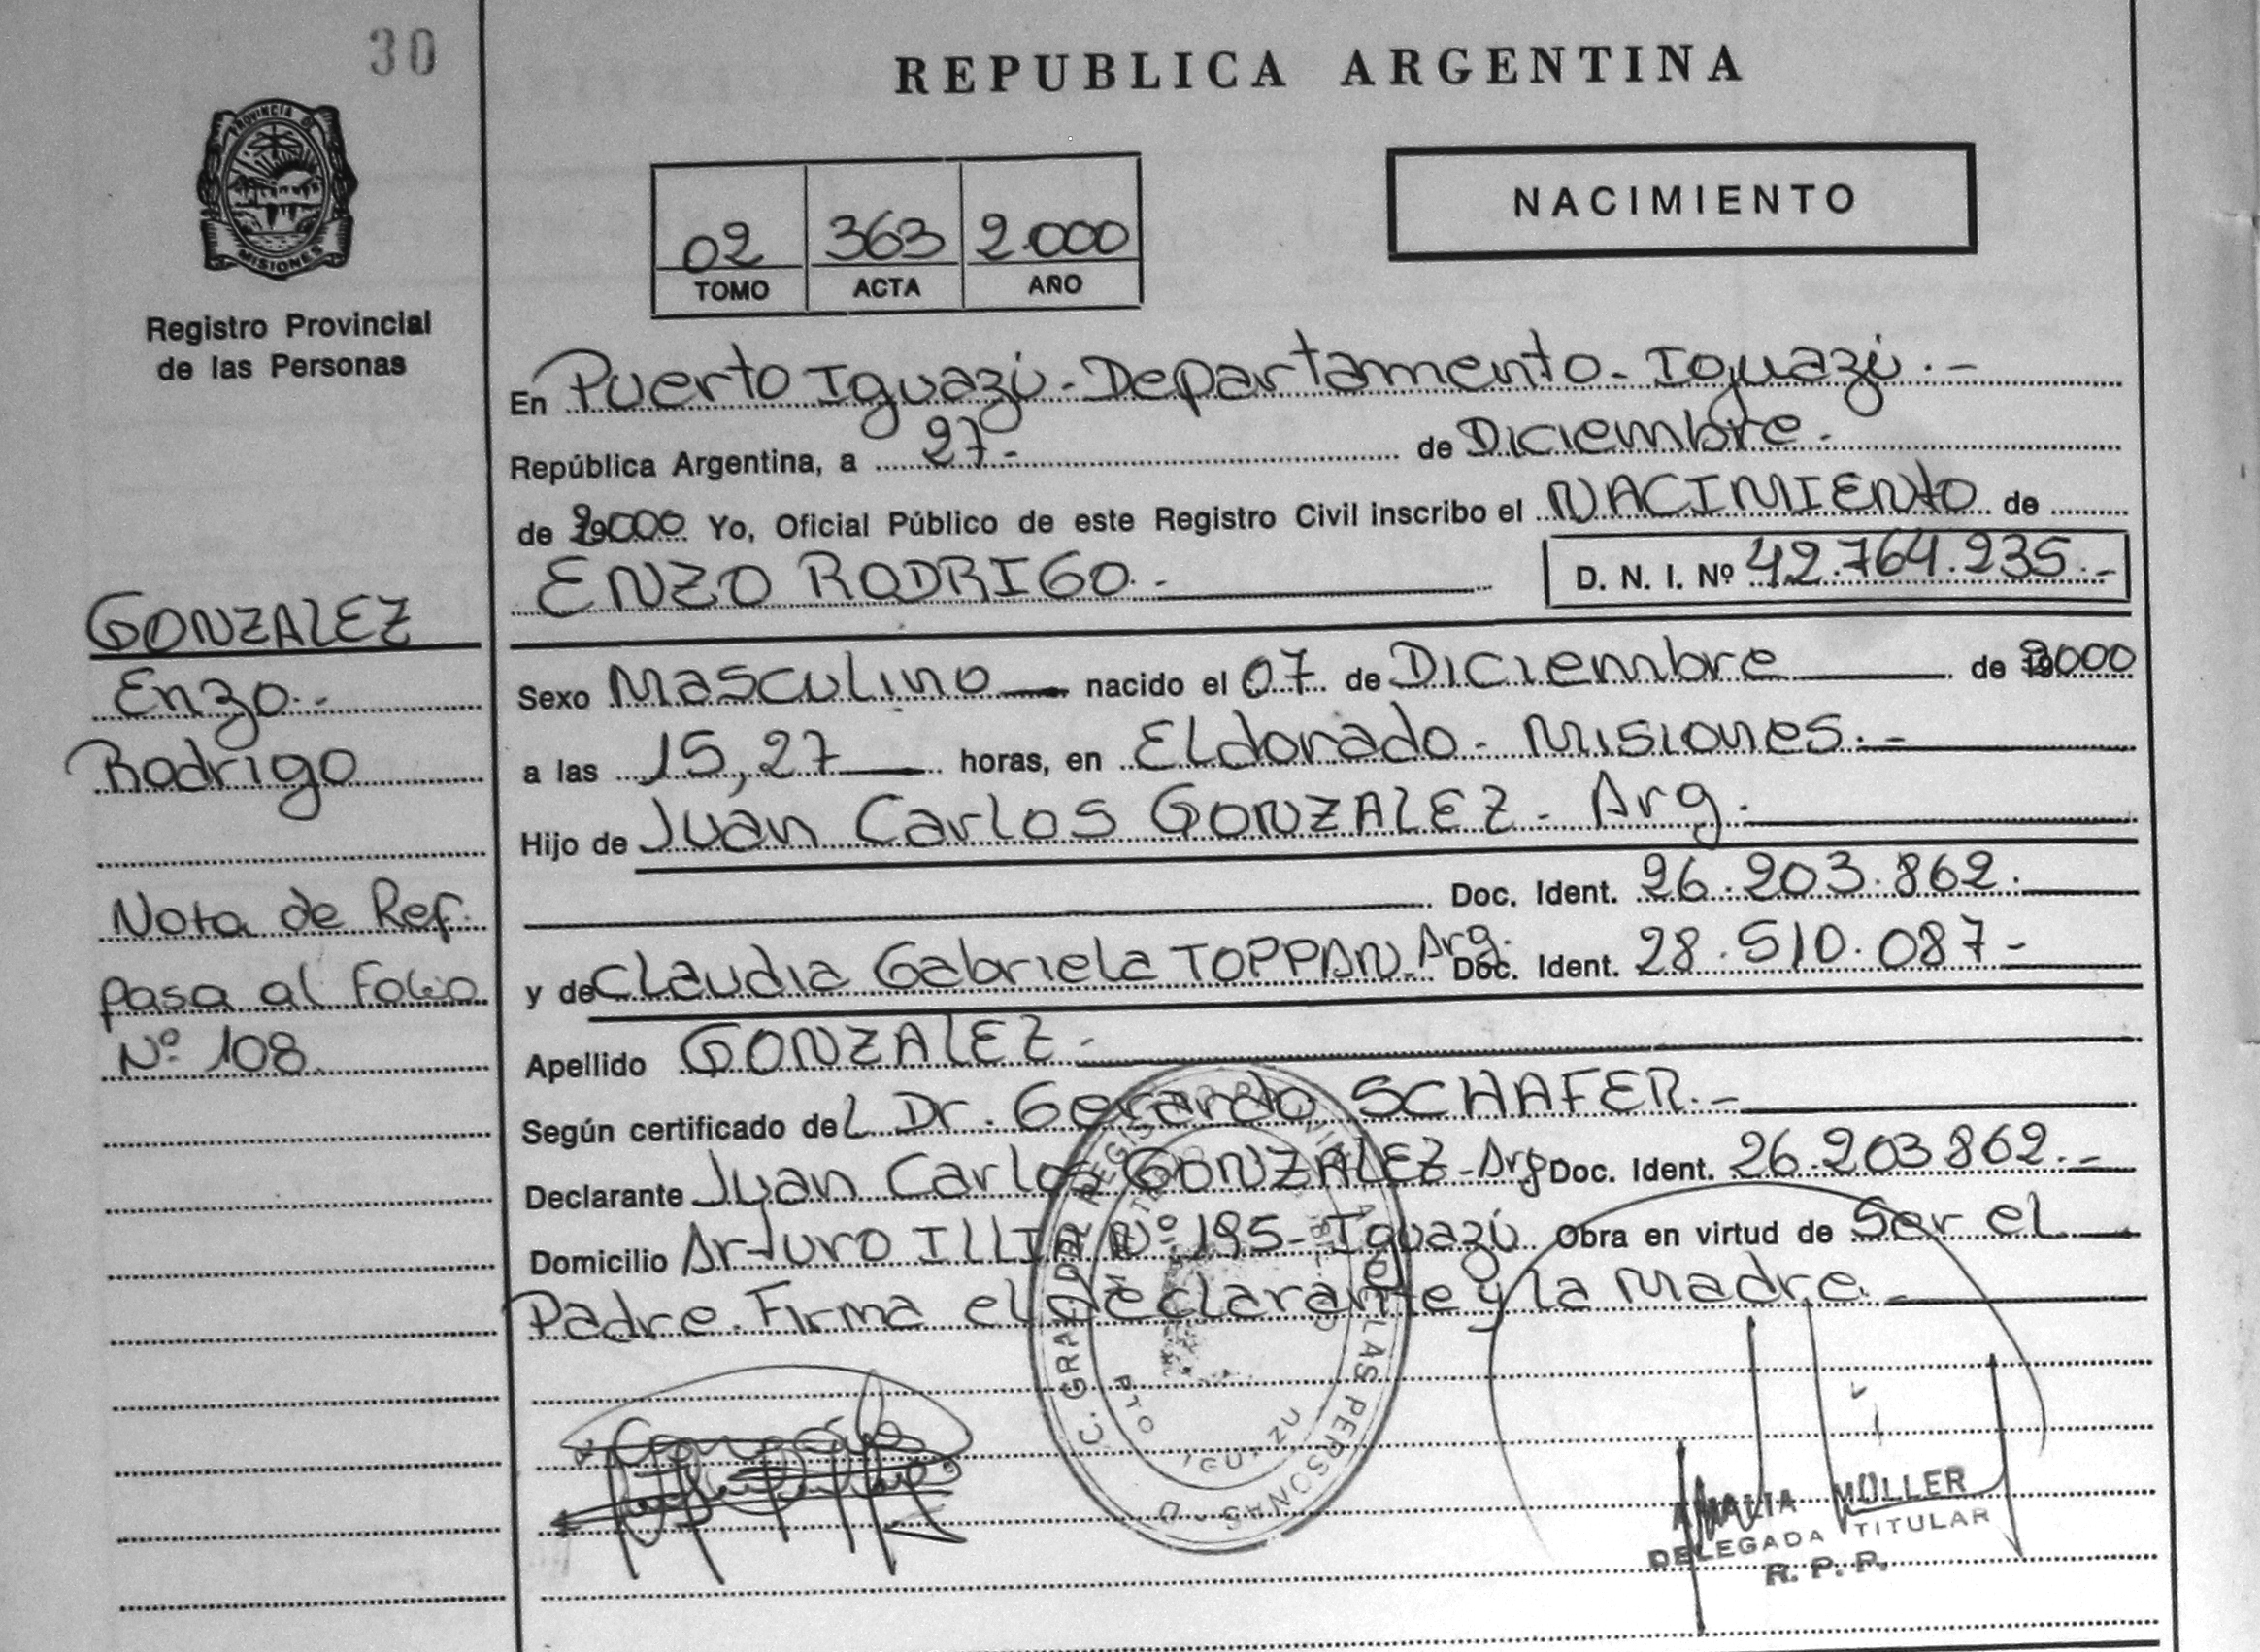 30
REPUBLICA ARGENTINA
PROVINCIA DE
MISIONES
Registro Provincial
de las Personas
NACIMIENTO
02 363 2.000
TOMO ACTA AÑO
En Puerto Iguazú - Departamento - Iguazú. -
República Argentina, a 27- de Diciembre.
de 2000 Yo, Oficial Público de este Registro Civil inscribo el NACIMIENto de
ENZO RODRIGO. -
D. N. I. Nº 42.764.235. -
GONZALEZ
Enzo. -
Rodrigo
Nota de Ref.
pasa al Folio
Nº 108.
Sexo Masculino nacido el 07 de Diciembre de 2000
a las 15,27 horas, en Eldorado - Misiones. -
Hijo de Juan Carlos GONZALEZ - Arg.
Doc. Ident. 26.203.862.
y de Claudia Gabriela TOPPAN - Arg. Doc. Ident. 28.510.087 -
Apellido GONZALEZ -
Según certificado del Dr. Gerardo SCHAFER. -
Declarante Juan Carlos GONZALEZ - Arg Doc. Ident. 26.203862. -
Domicilio Arturo ILLIA Nº 195 - Iguazú Obra en virtud de Ser el
Padre. Firma el declarante y la Madre. -
LAS PERSONAS
PTO IGUAZU
AMALIA MÜLLER
DELEGADA TITULAR
R. P. P.